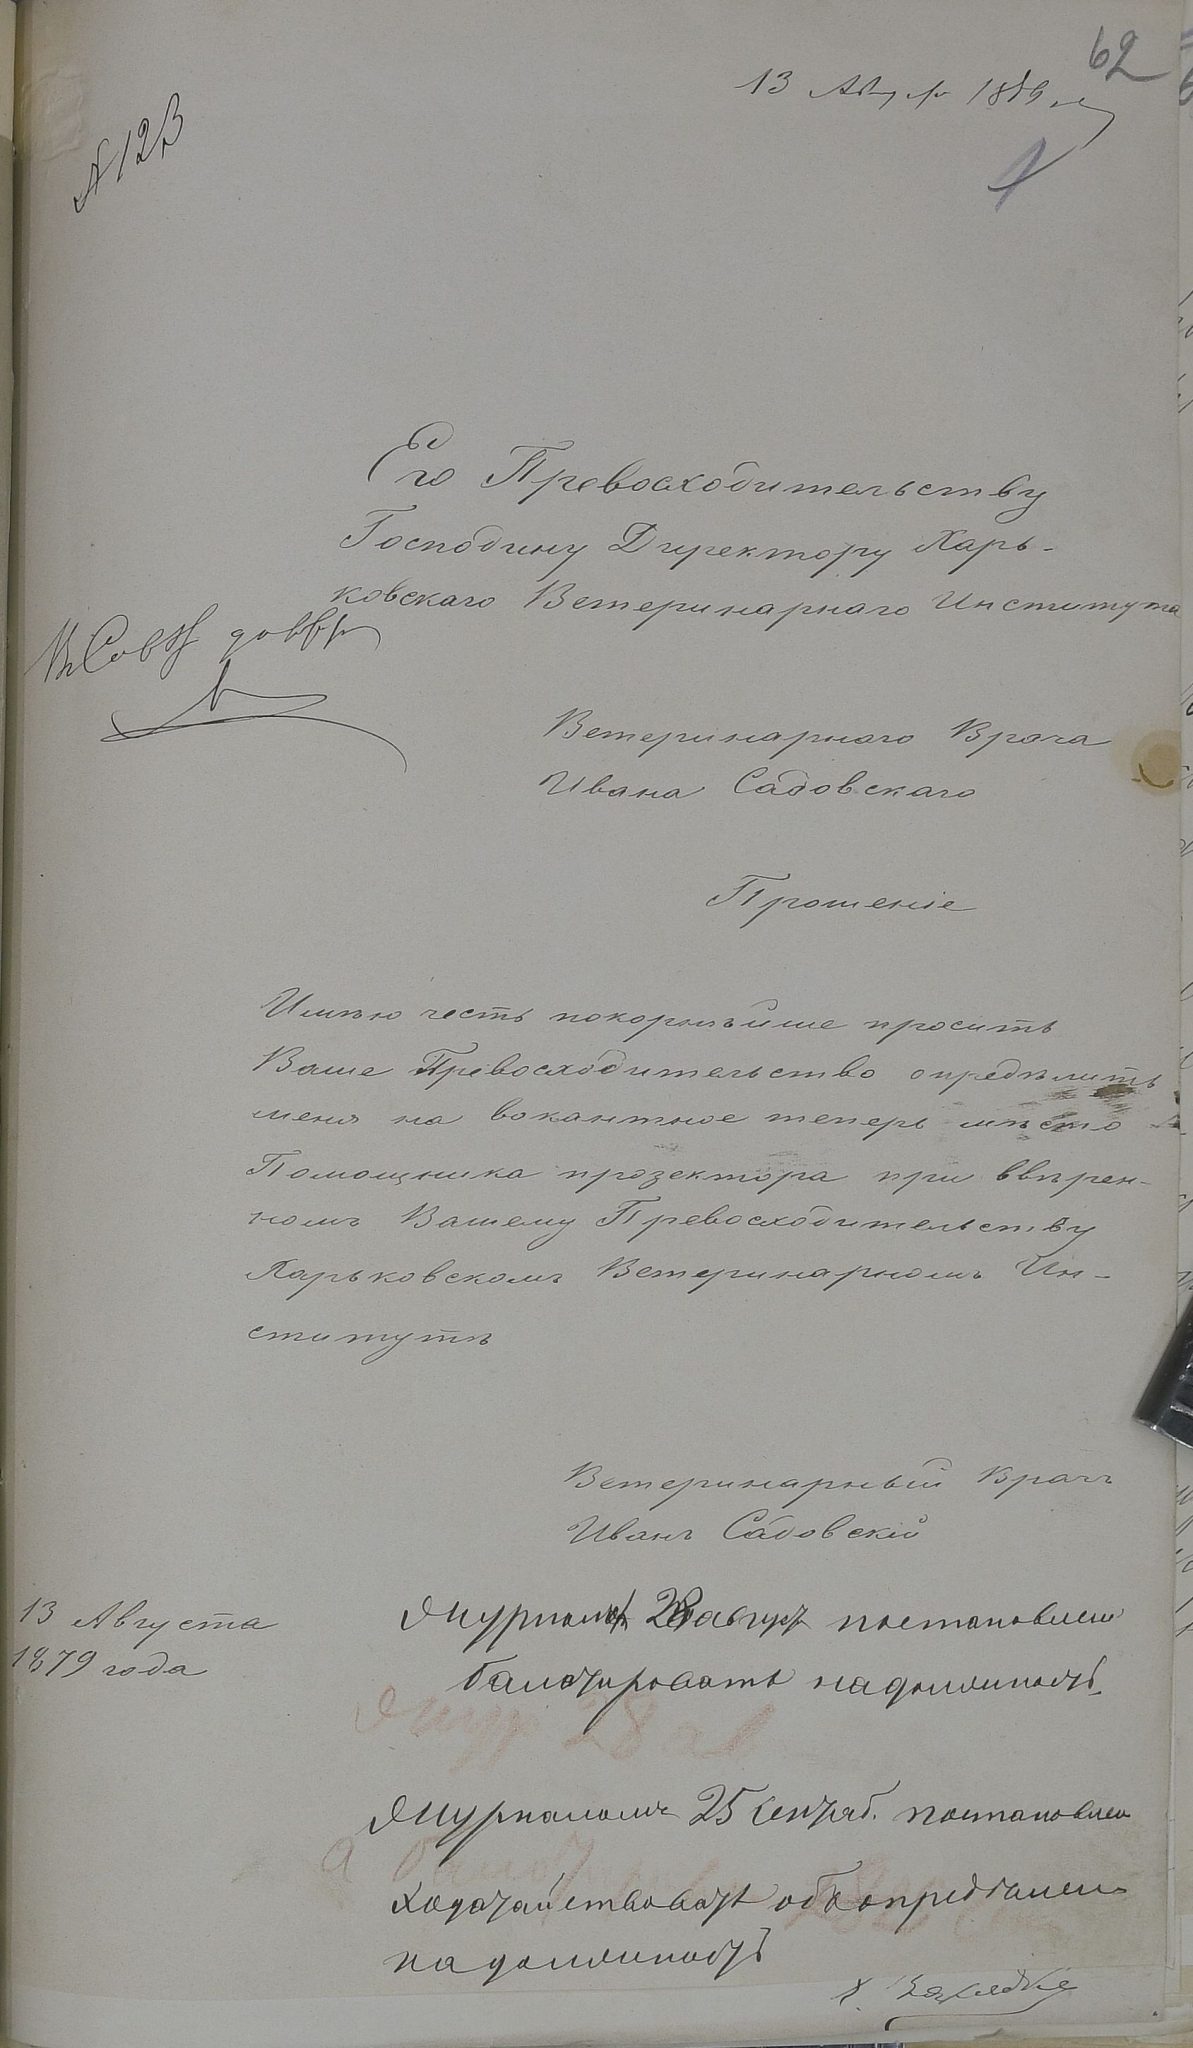 62
13 Августа 1879 г.
№ 123
Его Превосходительству
Господину Директору Харь-
ковскаго Ветеринарнаго Института
Въ Совѣтъ
Ветеринарнаго Врача
Ивана Садовскаго
Прошеніе
Имѣю честь покорнѣйше просить
Ваше Превосходительство опредѣлить
меня на вакантное теперь мѣсто
Помощника прозектора при ввѣрен-
номъ Вашему Превосходительству
Харьковскомъ Ветеринарномъ Ин-
ститутѣ
Ветеринарный Врачъ
Иванъ Садовскій
13 Августа
1879 года
Журналомъ 28 август постановлено
балотировать на должность.
Жур 28 ав
Журналомъ 25 сентяб. постановлен
ходатайствовать объ опредѣлен
на должность